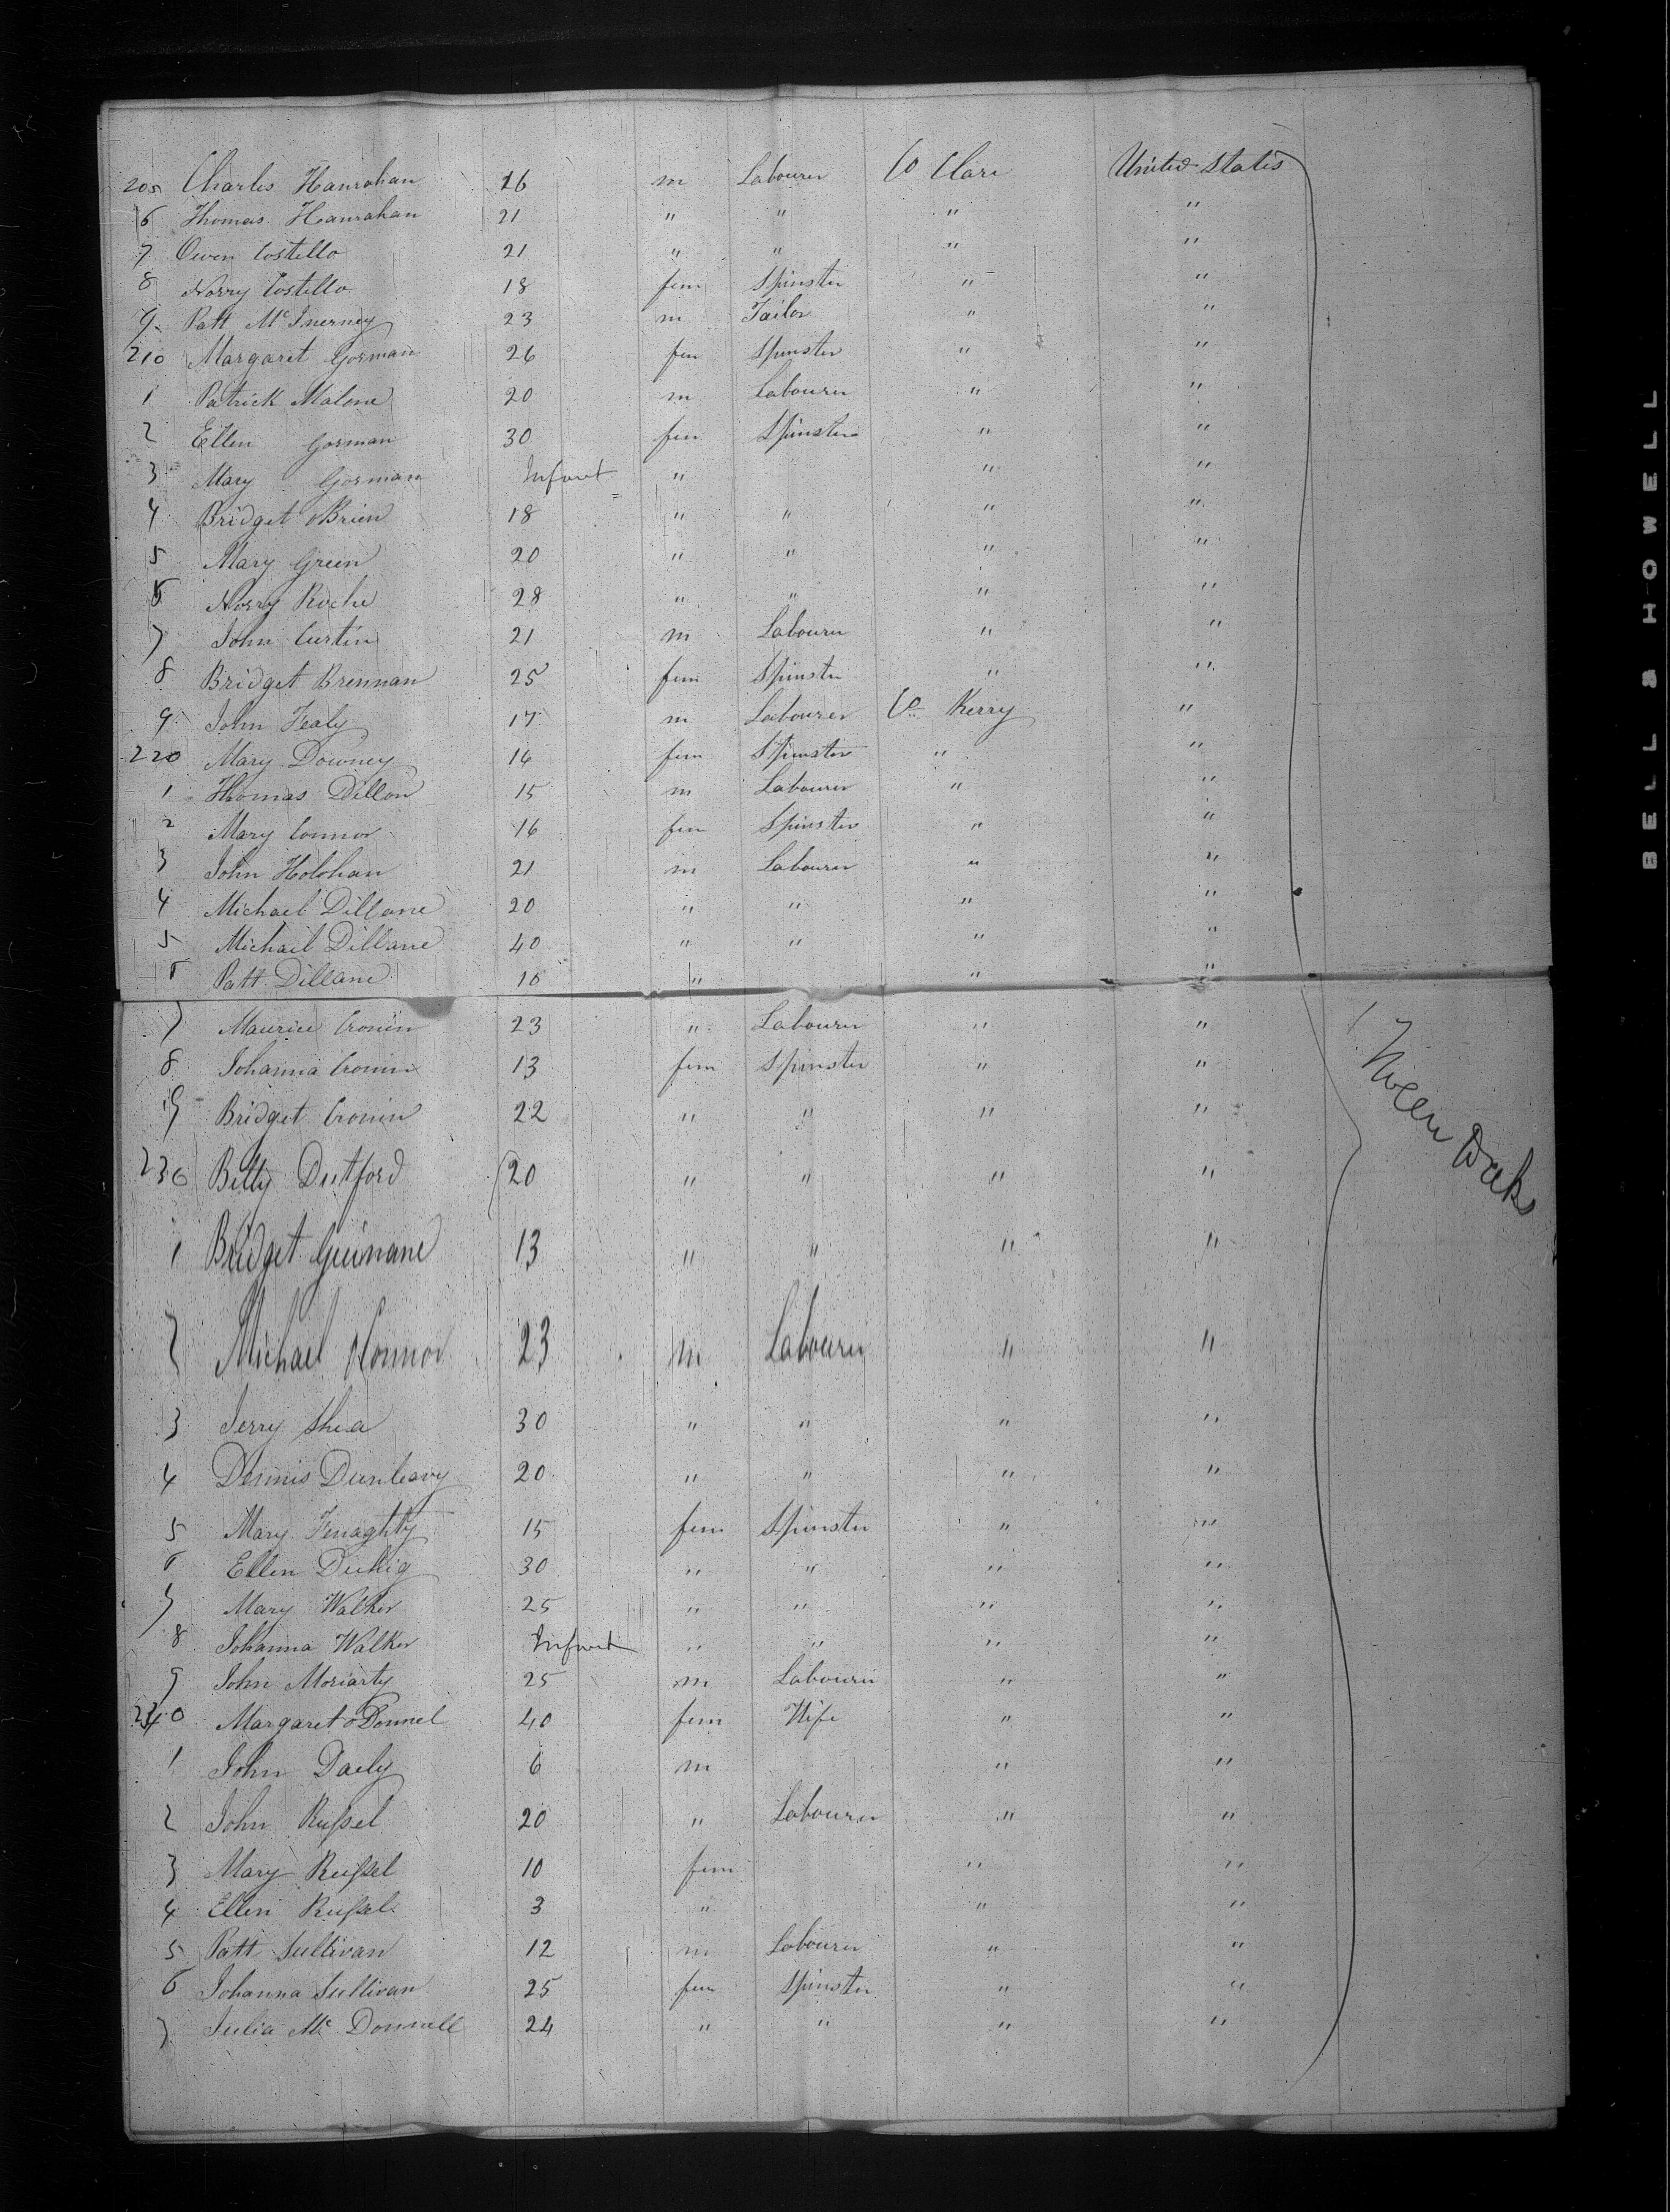 205 Charles Hanrahan 26 m Labourer Co Clare United States
6 Thomas Hanrahan 21 " " " "
7 Owen Costello 21 " " " "
8 Norry Costello 18 fem Spinster " "
9 Patt McInerney 23 m Tailor " "
210 Margaret Gorman 26 fem Spinster " "
1 Patrick Malone 20 m Labourer " "
2 Ellen Gorman 30 fem Spinster " "
3 Mary Gorman Infant " " "
4 Bridget OBrien 18 " " " "
5 Mary Green 20 " " " "
6 Norry Roche 28 " " " "
7 John Curtin 21 m Labourer " "
8 Bridget Brennan 25 fem Spinster " "
9 John Fealy 17 m Labourer Co Kerry "
220 Mary Downey 16 fem Spinster " "
1 Thomas Dillon 15 m Labourer " "
2 Mary Connor 16 fem Spinster " "
3 John Holohan 21 m Labourer " "
4 Michael Dillane 20 " " " "
5 Michail Dillane 40 " " " "
6 Patt Dillane 10 " " "
7 Maurice Cronin 23 " Labourer " "
8 Johanna Cronin 13 fem Spinster " "
9 Bridget Cronin 22 " " " "
230 Betty Dutford 20 " " " "
1 Bridget Guinane 13 " " " "
2 Michael OConnor 23 m Labourer " "
3 Jerry Shea 30 " " " "
4 Dennis Dunleavy 20 " " " "
5 Mary Fenaghty 15 fem Spinster " "
6 Ellen Duhig 30 " " " "
7 Mary Walker 25 " " " "
8 Johanna Walker Infant " " " "
9 John Moriarty 25 m Labourer " "
240 Margaret ODonnel 40 fem Wife " "
1 John Daely 6 m " "
2 John Russel 20 " Labourer " "
3 Mary Russel 10 fem " "
4 Ellen Russel 3 " " "
5 Patt Sullivan 12 m Labourer " "
6 Johanna Sullivan 25 fem Spinster " "
7 Julia Mc Donnell 24 " " " "
BELL & HOWELL